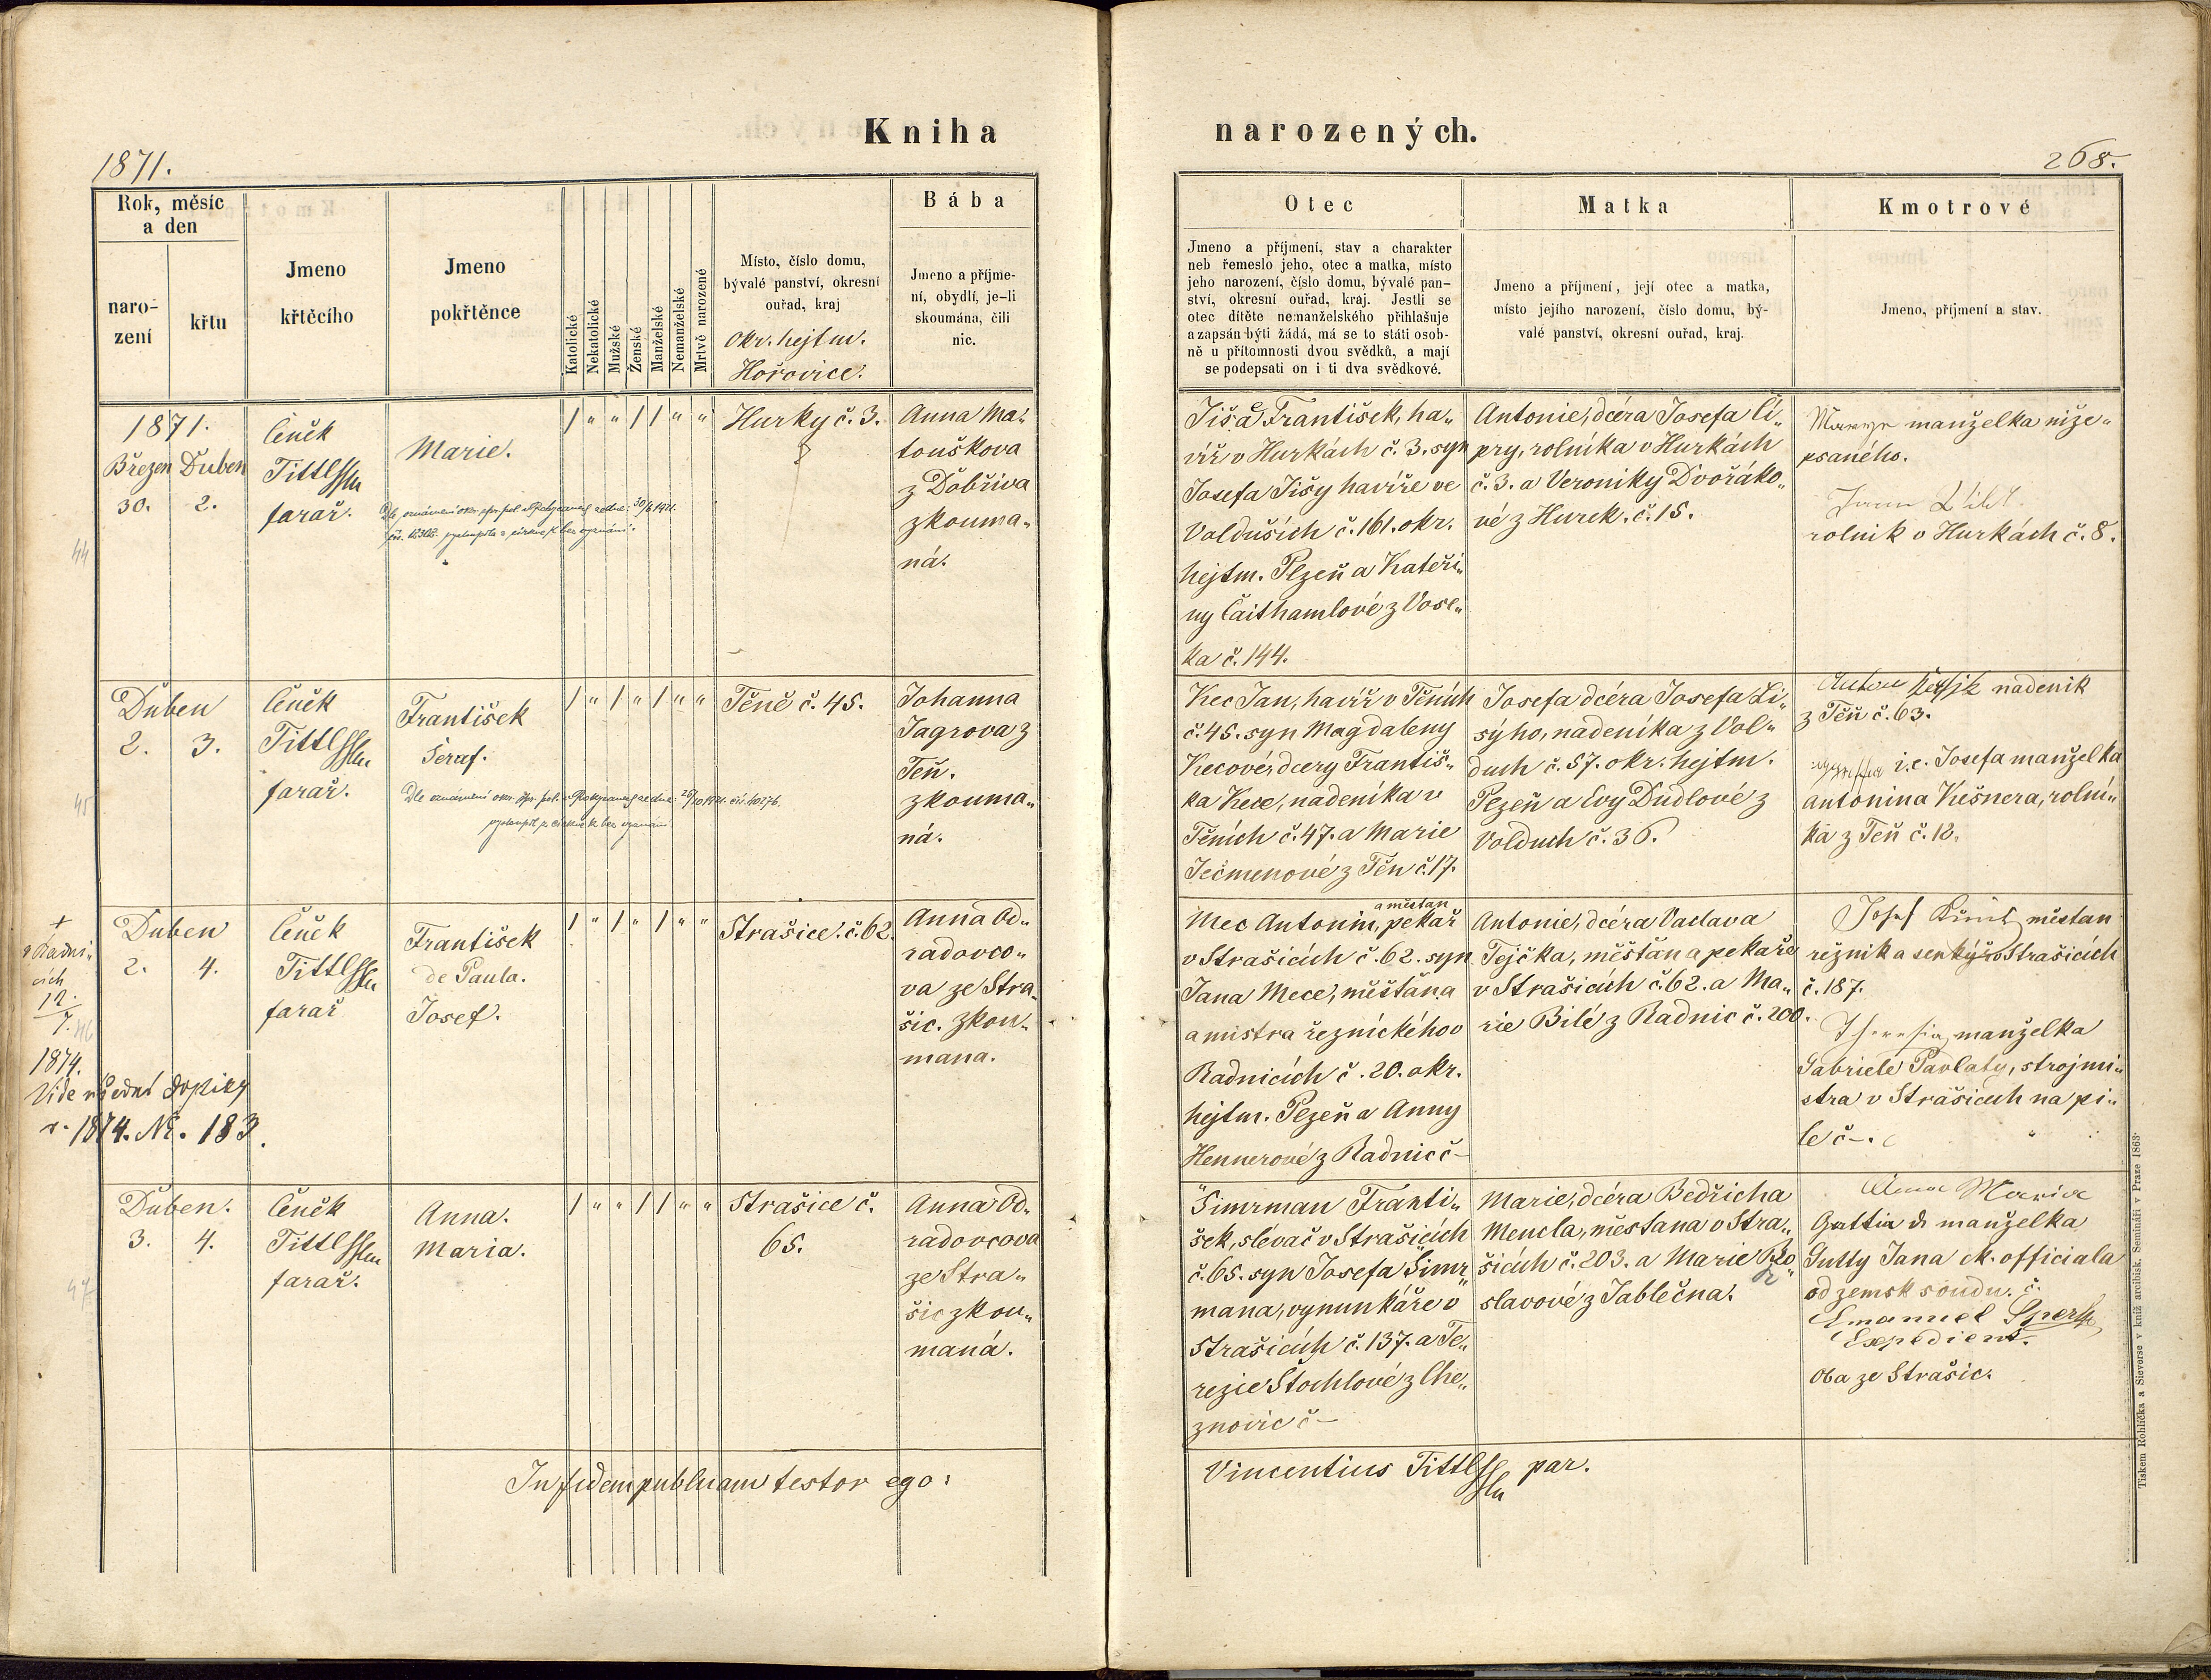 Kniha narozených.
1871.
268.
Rok, měsíc
a den
naro-
zení
křtu
Jmeno
křtěcího
Jmeno
pokřtěnce
Katolické
Nekatolické
Mužské
Ženské
Manželské
Nemanželské
Mrtvě narozené
Místo, číslo domu,
bývalé panství, okresní
ouřad, kraj
Okr. hejtm.
Hořovice.
Bába
Jmeno a příjme-
ní, obydlí, je-li
skoumána, čili
nic.
Otec
Jmeno a příjmení, stav a charakter
neb řemeslo jeho, otec a matka, místo
jeho narození, číslo domu, bývalé pan-
ství, okresní ouřad, kraj. Jestli se
otec dítěte nemanželského přihlašuje
a zapsán býti žádá, má se to státi osob-
ně u přítomnosti dvou svědků, a mají
se podepsati on i ti dva svědkové.
Matka
Jmeno a příjmení, její otec a matka,
místo jejího narození, číslo domu, bý-
valé panství, okresní ouřad, kraj.
Kmotrové
Jmeno, příjmení a stav.
44
1871.
Březen Duben
30. 2.
Čeněk
Tittl
farař.
Marie.
/ " " / / " "
Hurky č. 3.
Anna Ma-
touškova
z Dobřiva
zkouma„
ná.
Jiša František, ha„
víř v Hurkách č. 3. syn
Josefa Jišy havíře ve
Volduších č. 161. okr.
hejtm. Plzeň a Kateři„
ny Čaithamlové z Vose„
ka č. 144.
Antonie, dcéra Josefa Čí„
pry, rolníka v Hurkách
č. 3. a Veroniky Dvořáko„
vé z Hurek. č. 15.
manželka níže„
psaného.
rolník v Hurkách č. 8.
45
Duben
2. 3.
Čeněk
Tittl
farař.
František
Seraf.
/ " / " / " "
Těně č. 45.
Johanna
Jagrova z
Teň.
zkouma„
ná.
Kec Jan, havíř v Těních
č. 45. syn Magdaleny
Kecové, dcery Františ„
ka Kece, nadeníka v
Těních č. 47. a Marie
Ječmenové z Těn č. 17.
Josefa dcéra Josefa Li„
sýho, nadeníka z Vol„
duch č. 57. okr. hejtm.
Plzeň a Evy Dudlové z
Volduch č. 36.
Anton nadeník
z Těň č. 63.
i. e. Josefa manželka
Antonina Kešnera, rolní„
ka z Teň č. 12.
+
v Radni„
cích
12.
7.
1874.
Vide úřední dopisy
r. 1874. Nr. 183.
46
Duben
2. 4.
Čeněk
Tittl
farař
František
de Paula.
Josef.
/ " / " / " "
Strašice. č. 62.
Anna Od„
radovco„
va ze Stra„
šic. zkou„
mana.
a měštan
Mec Antonin, pekař
v Strašicích č. 62. syn
Jana Mece, měštána
a mistra řeznického v
Radnicích č. 20. okr.
hejtm. Plzeň a Anny
Hennerové z Radnic č –
Antonie, dcéra Vaclava
Tejčka, měštan a pekaře
v Strašicích č. 62. a Ma„
rie Bilé z Radnic č. 200.
Josef městan
řežník a senkýř v Strašicích
č. 187.
Theresia, manželka
Gabriele Pavlaty, strojmi„
stra v Strašicích na pi„
le č –.
47
Duben.
3. 4.
Čeněk
Tittl
farař.
Anna.
Maria.
/ " " / / " "
Strašice č.
65.
Anna Od„
radovcova
ze Stra„
šic zkou„
maná.
Šimrman Franti„
šek, slévač v Strašicích
č. 65. syn Josefa Šimr„
mana, vynunkáře v
Strašicích č. 137. a Te„
rezie Štochlové z Che„
znovic č –
Marie, dcéra Bedřicha
Mencla, měštana v Stra„
šicích č. 203. a Marie Ro„
slavové z Jablečna.
Anna Maria
manželka
Gutty Jana ck. officiala
od zemsk soudu. č.
Emanuel
Expedient.
Oba ze Strašic.
In fidem publicam testor ego: Vincentius Tittl par.
Tiskem Rohlíčka a Sieverse v kníž. arcibisk. Semináři v Praze 1863.